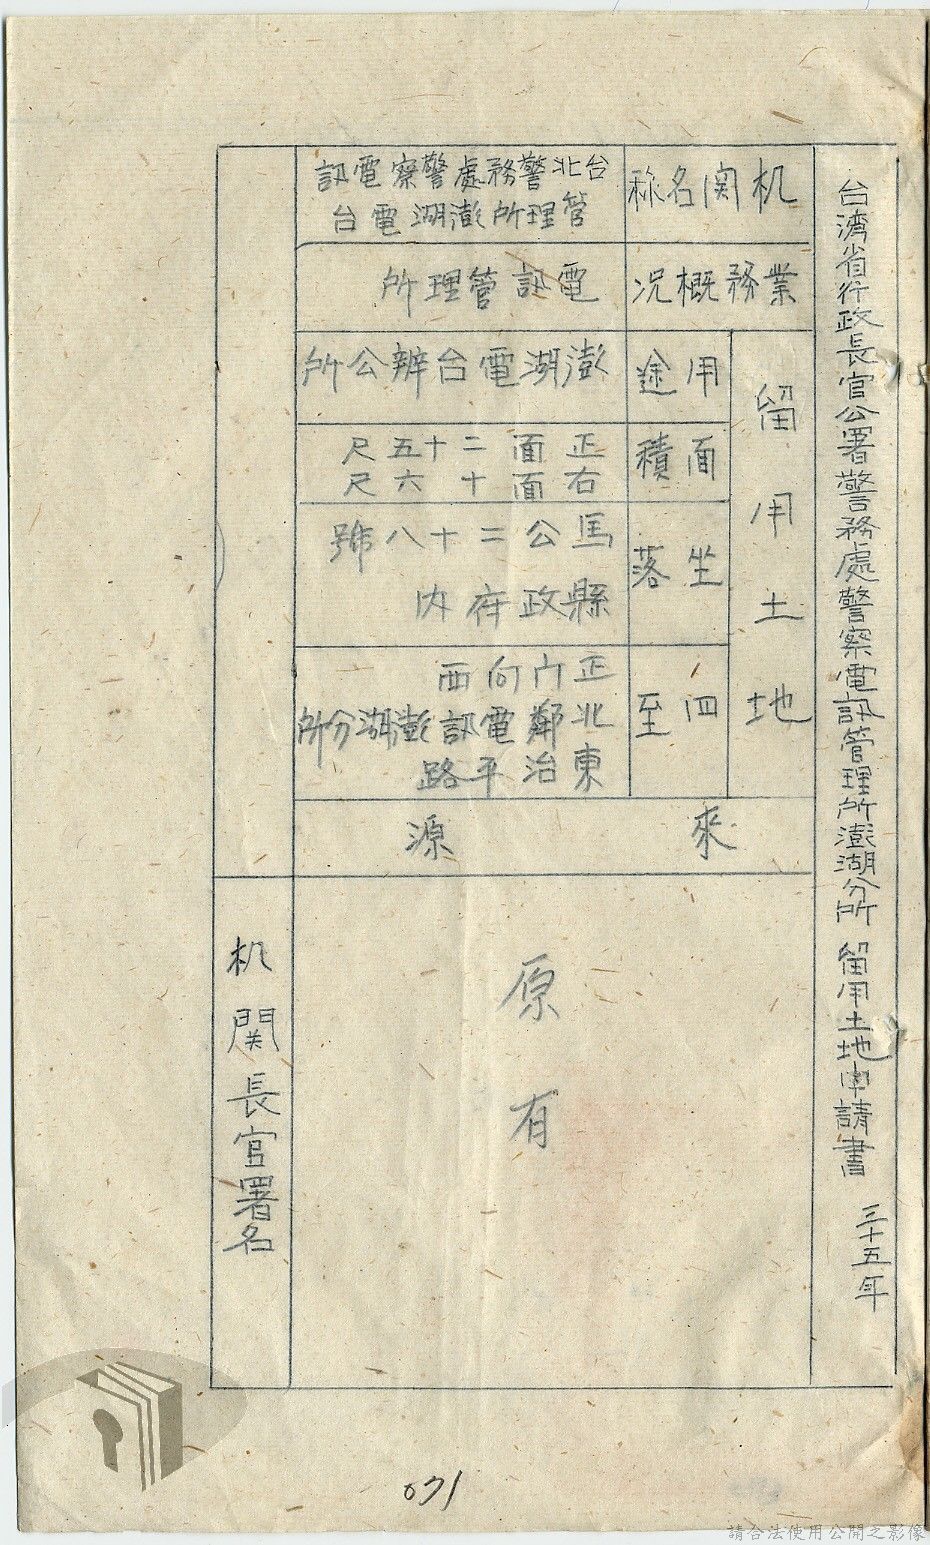 台湾省行政長官公署警務處警察電訊管理所澎湖分所 留用土地申請書 三十五年
机関名称
台北警務處警察電訊
管理所澎湖電台
業務概況
電訊管理所
留用土地
用途
澎湖電台辦公所
面積
正面 二十五尺
右面 十六尺
坐落
馬公二十八號
縣政府内
四至
正門向西
北鄰電訊澎湖分所
東治平路
來源
原有
机関長官署名
071
請合法使用公開之影像